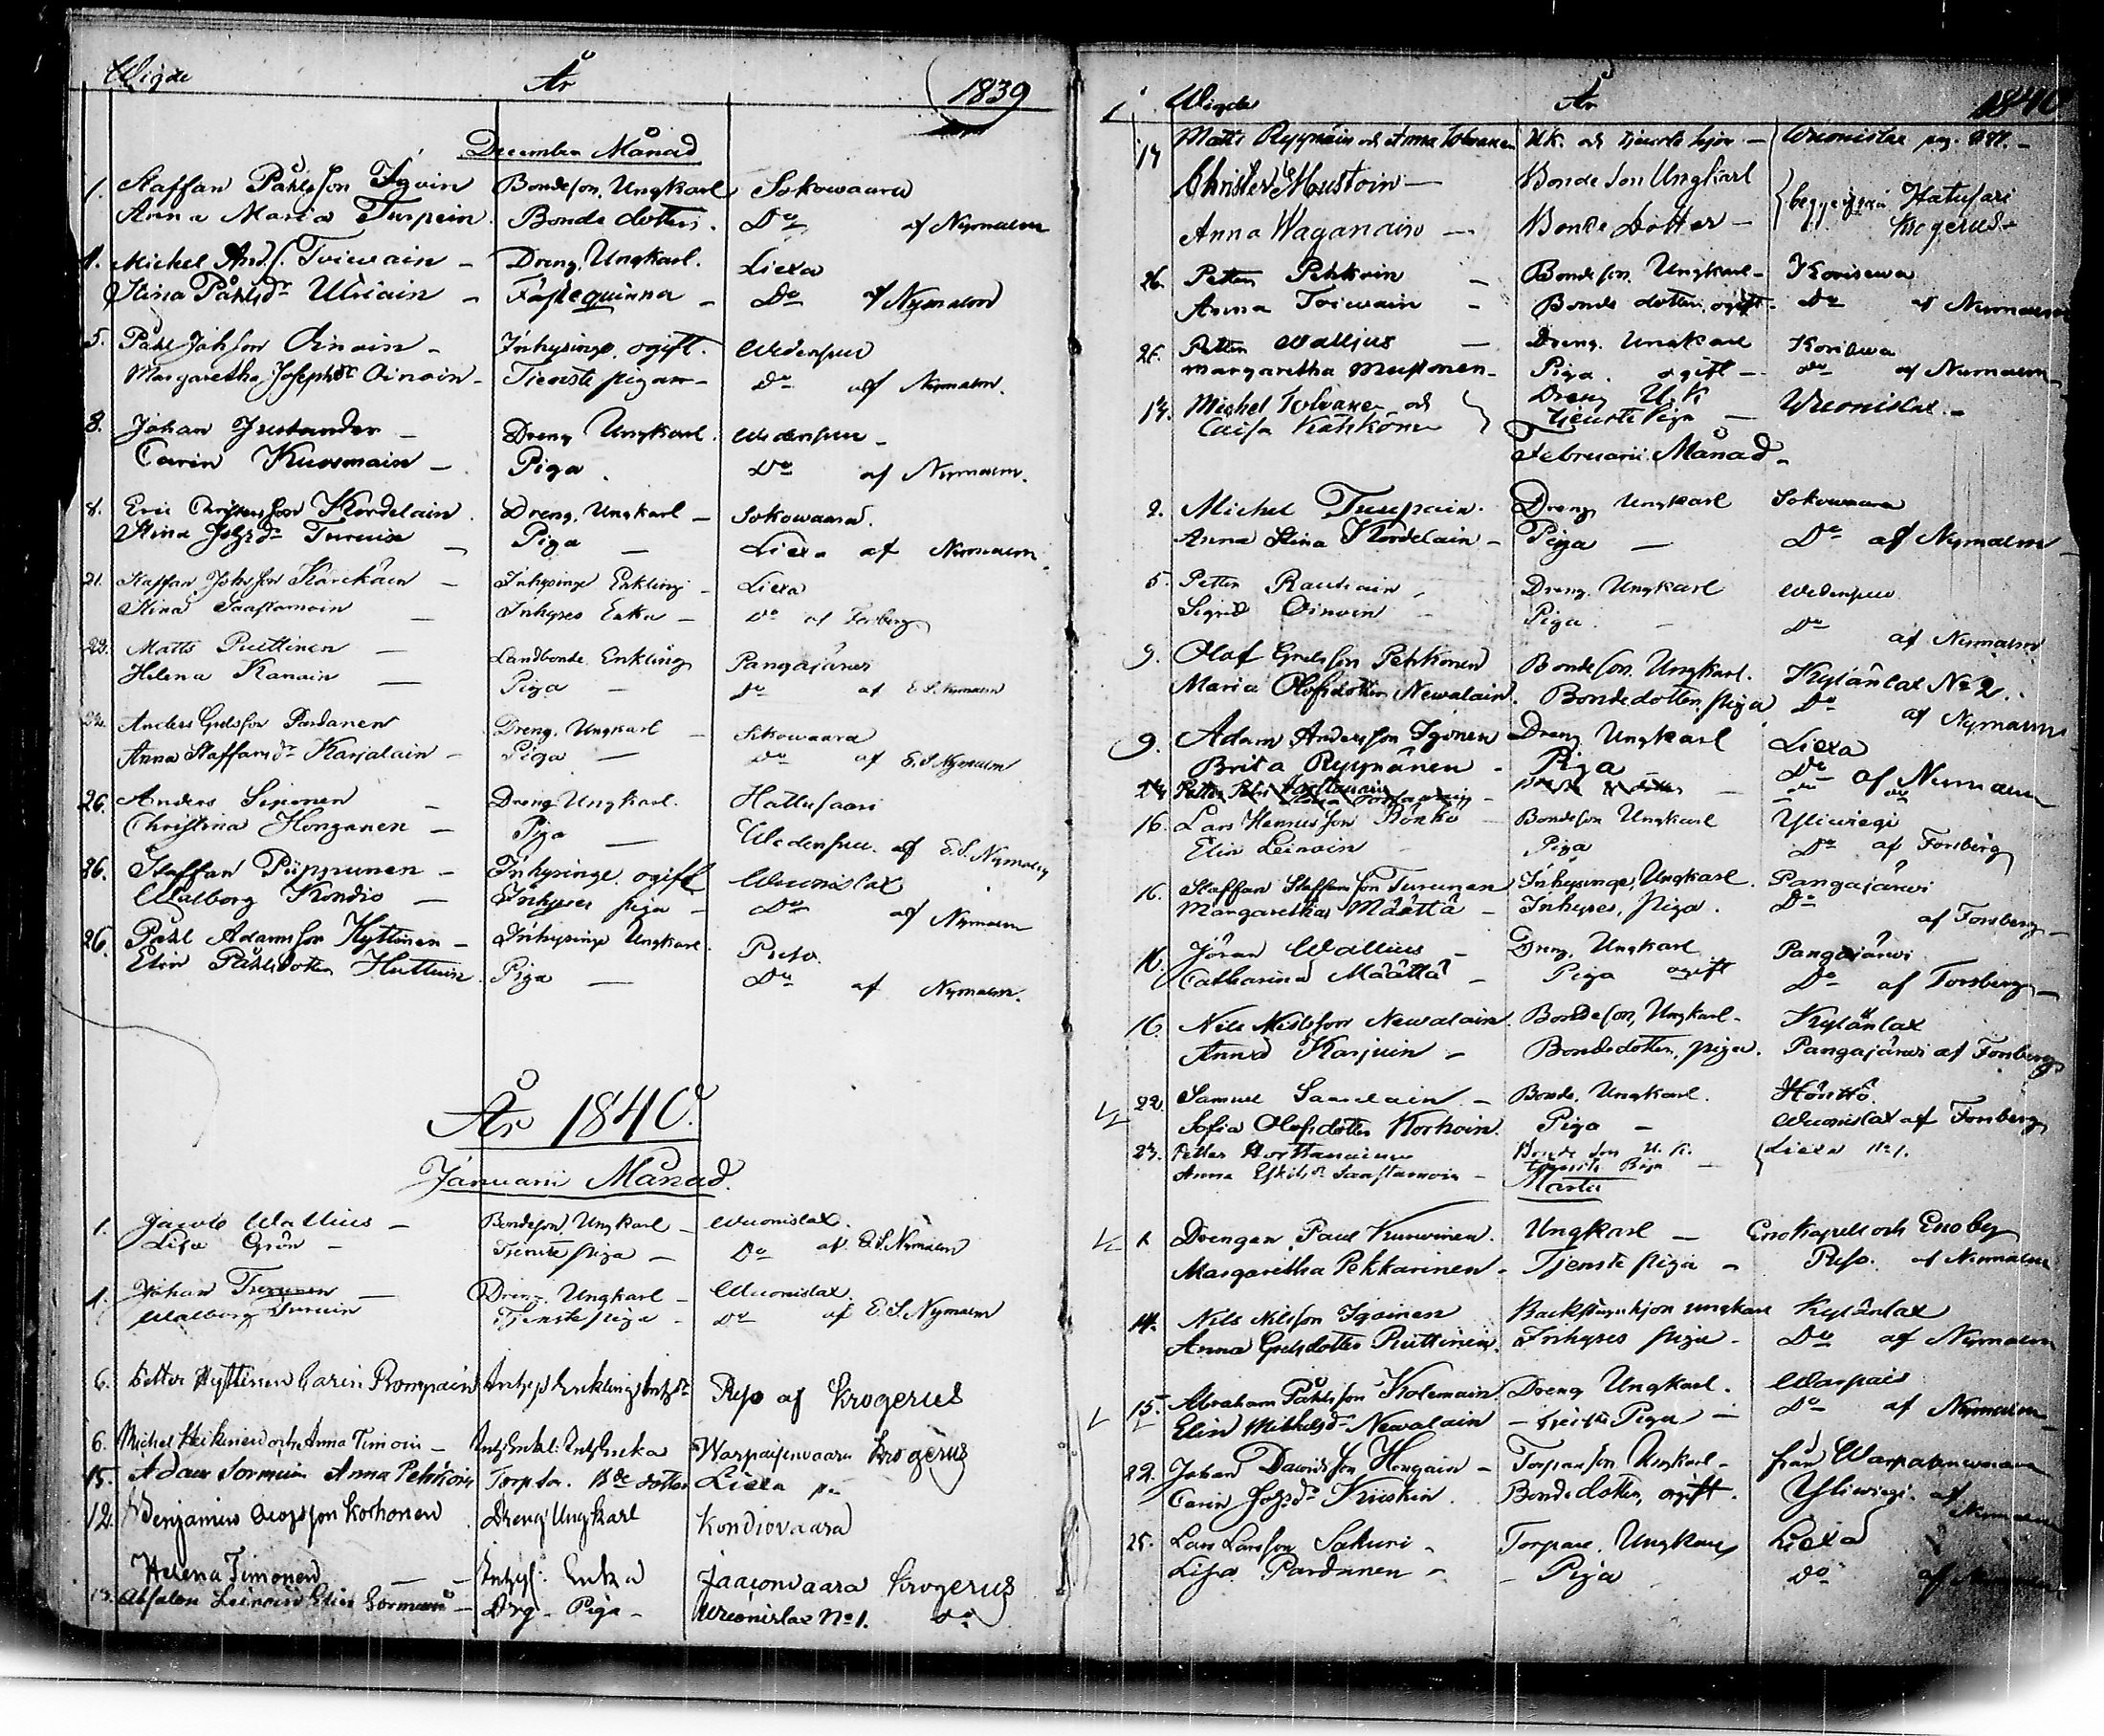 Wigde År 1839
December Månad
1. Staffan Påhlsson Igoin Bondeson, Ungkarl Sokowaara
Anna Maria Turpein Bonde dotter. Do af Nymalm
1. Michel And.s. Toiwain Dreng, Ungkarl. Liexa
Stina Påhlsdr Uliain Fästequinna Do af Nymalm
5. Påhl Johsson Oinoin Inhysinge, ogift. Wiedensuu
Margaretha Josephsdr Oinoin Tienste pigan Do af Nymalm.
8. Johan Dreng Ungkarl. Wiedensuu
Carin Kuosmain Piga. Do af Nymalm.
8. Eric Christersson Kordelain Dreng, Ungkarl Sokowaara.
Stina Johsdr Turuin Piga Liexa af Nymalm.
21. Staffan Johsson Kärckäin Inhysinge Enkling Liexa
Stina Saastamoin Inhyses Enka Do af Forsberg
22. Matts Puittinen Landbonde Enkling Pangajärwi
Helena Kanain Piga Do af E.S. Nymalm
26. Anders Grelsson Pardanen Dreng, Ungkarl Sokowaara
Anna Staffansdr Karjalain Piga Do af E.S. Nymalm
26. Anders Siponen Dreng Ungkarl. Hattusaari
Christina Honganen Piga Wiedensuu. af E.S. Nymalm
26. Staffan Piipponen Inhysinge, ogift Wuonislax
Walborg Kondio Inhyses piga Do af Nymalm
26. Påhl Adamsson Hyttinen Inhysinge Ungkarl. Puso
Elin Påhlsdotter Huttuin Piga Do af Nymalm.
År 1840.
Januarii Månad.
1. Jacob Wallius Bondeson, Ungkarl Wuonislax.
Lisa Grön Tjenste piga Do af E.S. Nymalm
1. Johan Turunen Dreng, Ungkarl Wuonislax.
Walborg Turuin Tjenste piga Do af E.S. Nymalm
6. Petter Hyttinen Carin Rompain Puso af Krogerus
6. Michel Heikinen och Anna Timoin Inhs Enkl: Inhs Enka Warpaisenvaara Krogerus
15. Adam Sormuin Anna Pehkoin Torp. So. Bde dotter Liexa
12. Benjamin Korhonen Dreng Ungkarl Kondiovaara
Helena Timonen Enka Jaaconvaara Krogerus
13. Absalon Leinoin Elin Sormuin Drg - Piga - Wuonislax No 1. Do
Wigde År 1840
14 Matts Ryynäin och Anna Tolwanen U.K. och tjenste hjon Wuonislax pag. 
Christer Mustoin Bonde Son Ungkarl begge ifrån Hatusari
Anna Waganain Bonde Dotter Krogerus
26. Petter Pehkoin Bondeson, Ungkarl Koriseva
Anna Toiwain Bonde dotter, ogift Do af Nymalm
26. Petter Wallius Dreng, Ungkarl Koriseva
Margaretha Mustonen Piga. ogift Do af Nymalm
14. Michel Tolvanen och Dreng U.K. Wuonislax
Caisa Kähköne Tienste Piga
Februarii Månad
2. Michel Turpain. Dreng Ungkarl Sokowaara
Anna Stina Kordelain Piga Do af Nymalm
5. Petter Rautiain Dreng, Ungkarl Wiedensuu
Sigrid Oinoin Piga Do af Nymalm
9. Olof Grelsson Pehkonen Bondeson, Ungkarl. Kylänlax No 2.
Maria Olofsdotter Newalain. Bondedotter, piga Do af Nymalm
9. Adam Andersson Igonen Dreng Ungkarl Liexa
Brita Ryynänen Piga Do af Nymalm
16. Lars Henricsson Rönkö Bondeson Ungkarl Yliwiegi
Elin Leinoin Piga Do af Forsberg
16. Staffan Staffansson Turunen Inhysinge, Ungkarl. Pangajärwi
Margaretha Määttä Inhyses, piga. Do af Forsberg
16. Jöran Wallius Dreng, Ungkarl Pangajärwi
Catharina Määttä Piga ogift Do af Forsberg
16. Nils Nilsson Newalain Bondeson, Ungkarl. Kylänlax
Anna Karjuin Bondedotter, piga. Pangajärwi af Forsberg
22. Samuel Saarelain Bonde, Ungkarl. Höntö.
Sofia Olofsdotter Korhoin Piga Wuonislax af Forsberg
23. Petter Bonde Son U.K. Liexa No 1.
Anna Eskilsdr Saastamoin tjenste Piga
Martii
1 Drengen Paul Kurvinen. Ungkarl Eno Kapell och Eno by
Margaretha Pekkarinen Tjenste piga Puso. af Nymalm
14. Nils Nilsson Igoinen Backstuguhjon ungkarl Kylänlax
Anna Grelsdotter Puittinen Inhyses piga Do af Nymalm
15. Abraham Påhlsson Kolemain Dreng Ungkarl. Warpais
Elin Michelsdr Newalain Piga Do af Nymalm
22. Johan Davidsson Hongain Torpareson, Ungkarl från Warpaisenwaara
Carin Johsdr Kiiskin. Bonde dotter, ogift. Yliwiegi. af Nymalm
25. Lars Larsson Sakuri Torpare, Ungkarl Liexa
Lisa Pardanen Piga Do af Nymalm